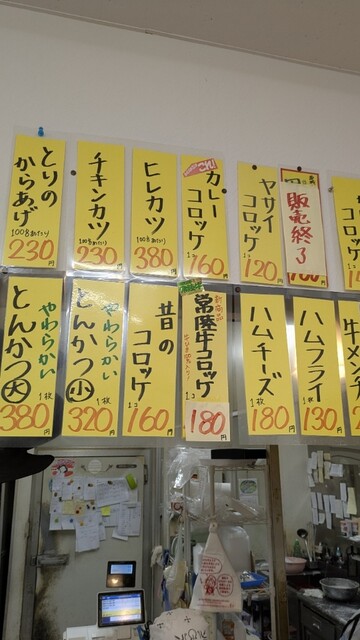 とりの
からあげ
100gあたり
230円
チキンカツ
100gあたり
230円
ヒレカツ
100gあたり
380円
これ!
カレー
コロッケ
1コ
160円
ヤサイ
コロッケ
1コ
120円
販売終了
円
やわらかい
とんかつ大
1枚
380円
やわらかい
とんかつ小
1枚
320円
昔の
コロッケ
1コ
160円
新商品
常陸牛コロッケ
1コ
180円
ハムチーズ
1枚
180円
ハムフライ
1枚
130円